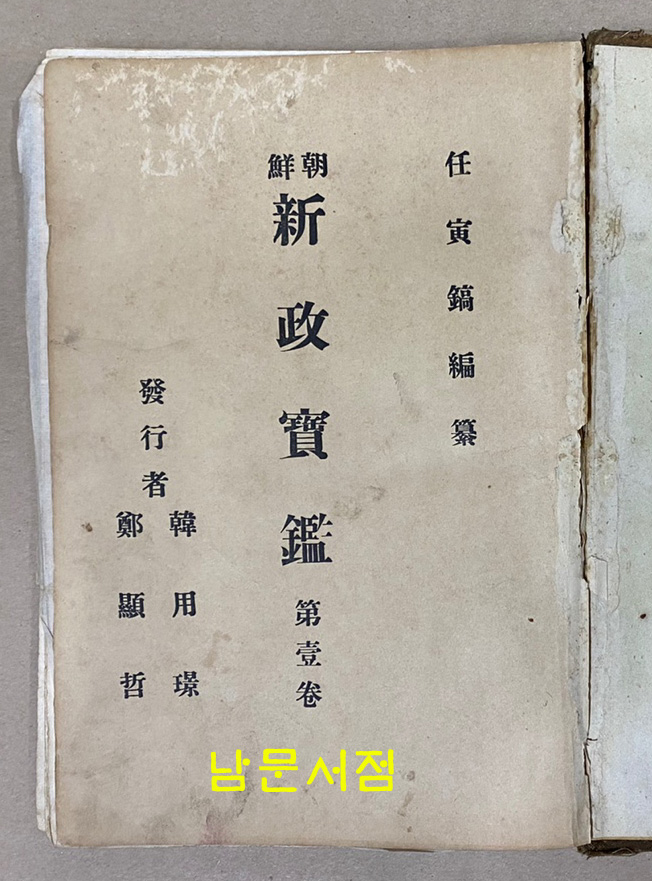 任寅鎬編纂
朝鮮
新政寶鑑 第壹卷
發行者
韓用璟
鄭顯哲
남문서점